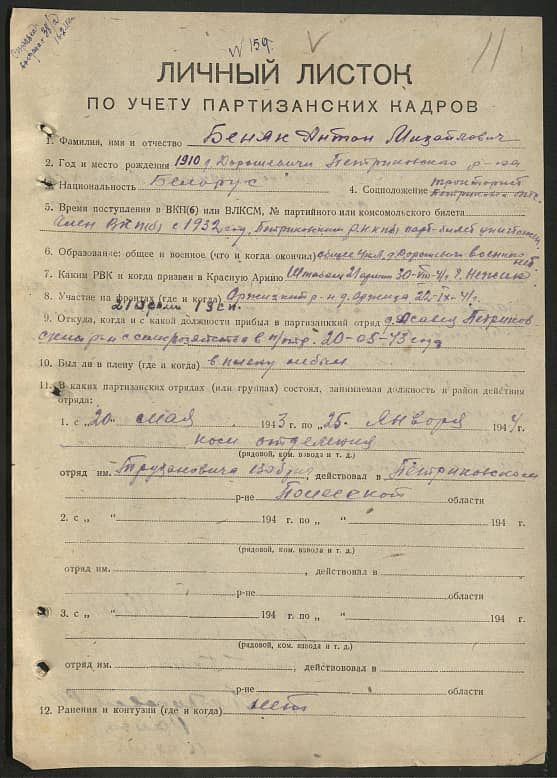 N 159.
11
ЛИЧНЫЙ ЛИСТОК
ПО УЧЕТУ ПАРТИЗАНСКИХ КАДРОВ
1. Фамилия, имя и отчество Беняк Антон Михайлович
2. Год и место рождения 1910 д. Дорошевичи Петриковского р-на
3. Национальность Белорус 4. Соцположение тракторист
5. Время поступления в ВКП(б) или ВЛКСМ, № партийного или комсомольского билета
Член ВКПб с 1932 год. Петриковским РККПб парт-билет уничтожен
6. Образование: общее и военное (что и когда окончил) общее 4 кл. д. Дорошевичи военного нет
7. Каким РВК и когда призван в Красную Армию Штабом 21 армии 30-VIII-41 г. Нежин
8. Участие на фронтах (где и когда) Оржицкий р-н д. Оржица 22-IX-41 г.
21 Армии 13 сп.
9. Откуда, когда и с какой должности прибыл в партизанкий отряд
20-05-43 года
10. Был ли в плену (где и когда) в плену не был
11. В каких партизанских отрядах (или группах) состоял, занимаемая должность и район действия
отряда:
1. с „20“ мая 1943 г. по „25“ Января 1944 г.
ком отделения
(рядовой, ком. взвода и т. д.)
отряд им. , действовал в Петриковском
р-не Полесской области
2. с „ “ 194 г. по „ “ 194 г.
(рядовой, ком. взвода и т. д.)
отряд им. , действовал в
р-не области
3. с „ “ 194 г. по „ “ 194 г.
(рядовой, ком. взвода и т. д.)
отряд им. , действововал в
р-не области
12. Ранения и контузии (где и когда) нет